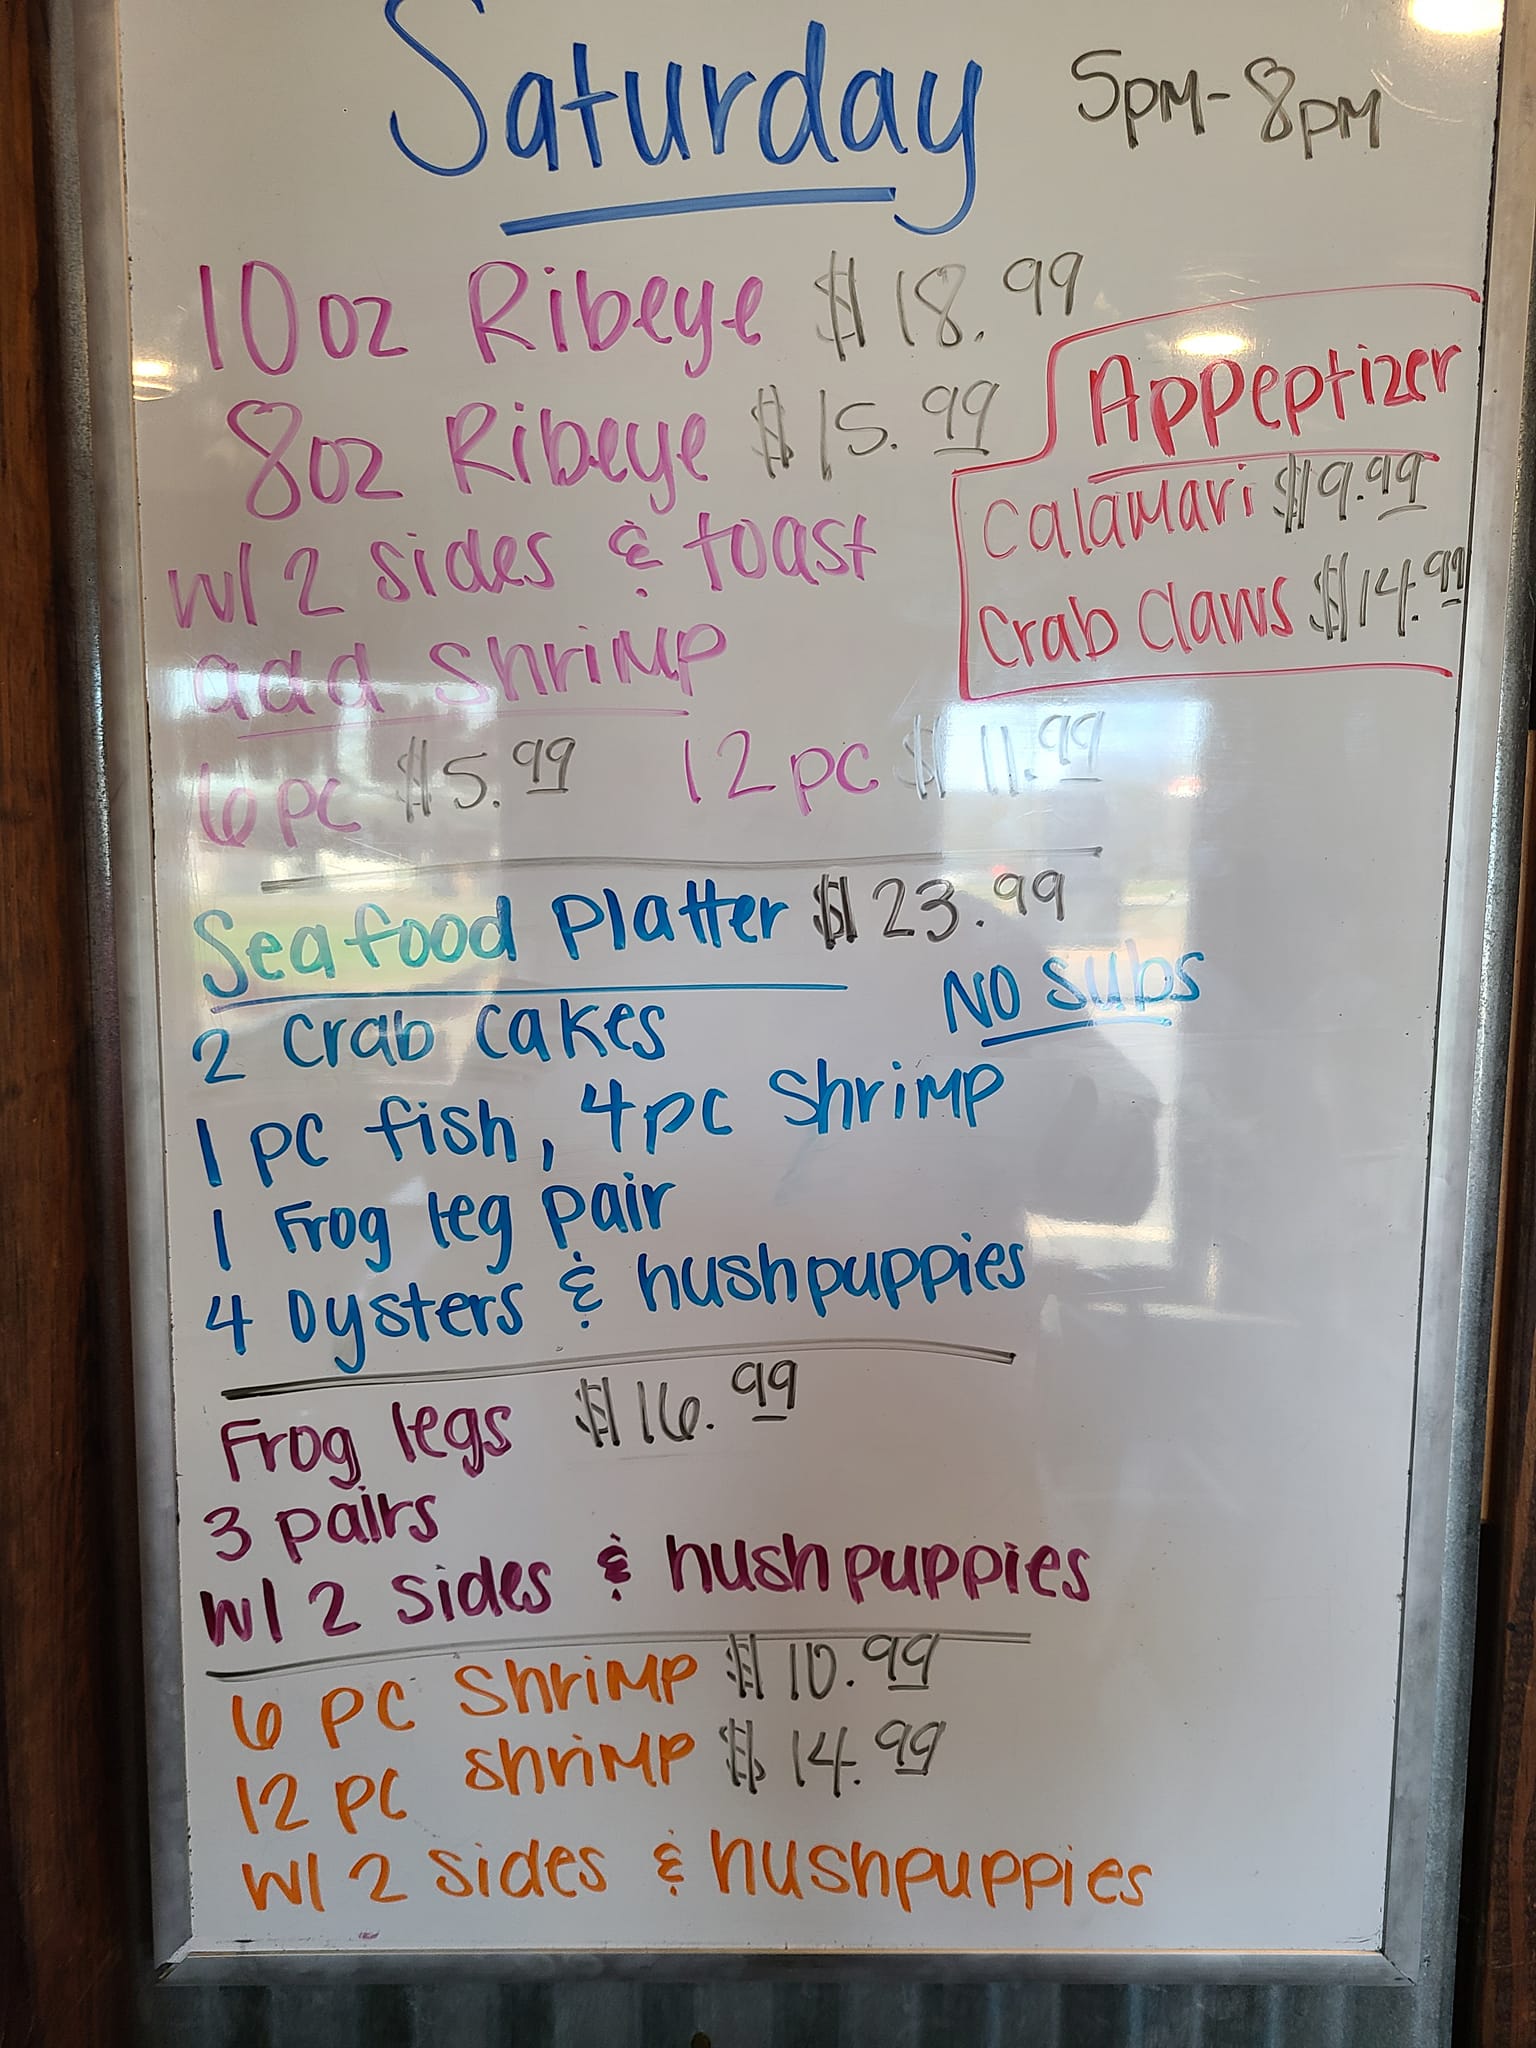 Saturday 5pm-8pm
10oz Ribeye $18.99
8oz Ribeye $15.99
w/ 2 sides & toast
add shrimp
6pc $5.99 12pc $11.99
Appeptizer
Calamari $9.99
Crab Claws $14.99
Seafood Platter $23.99
NO subs
2 Crab Cakes
1 pc fish, 4pc Shrimp
1 Frog leg pair
4 Oysters & hushpuppies
Frog legs $16.99
3 pairs
w/ 2 sides & hushpuppies
6 pc Shrimp $10.99
12 pc shrimp $14.99
w/ 2 sides & hushpuppies